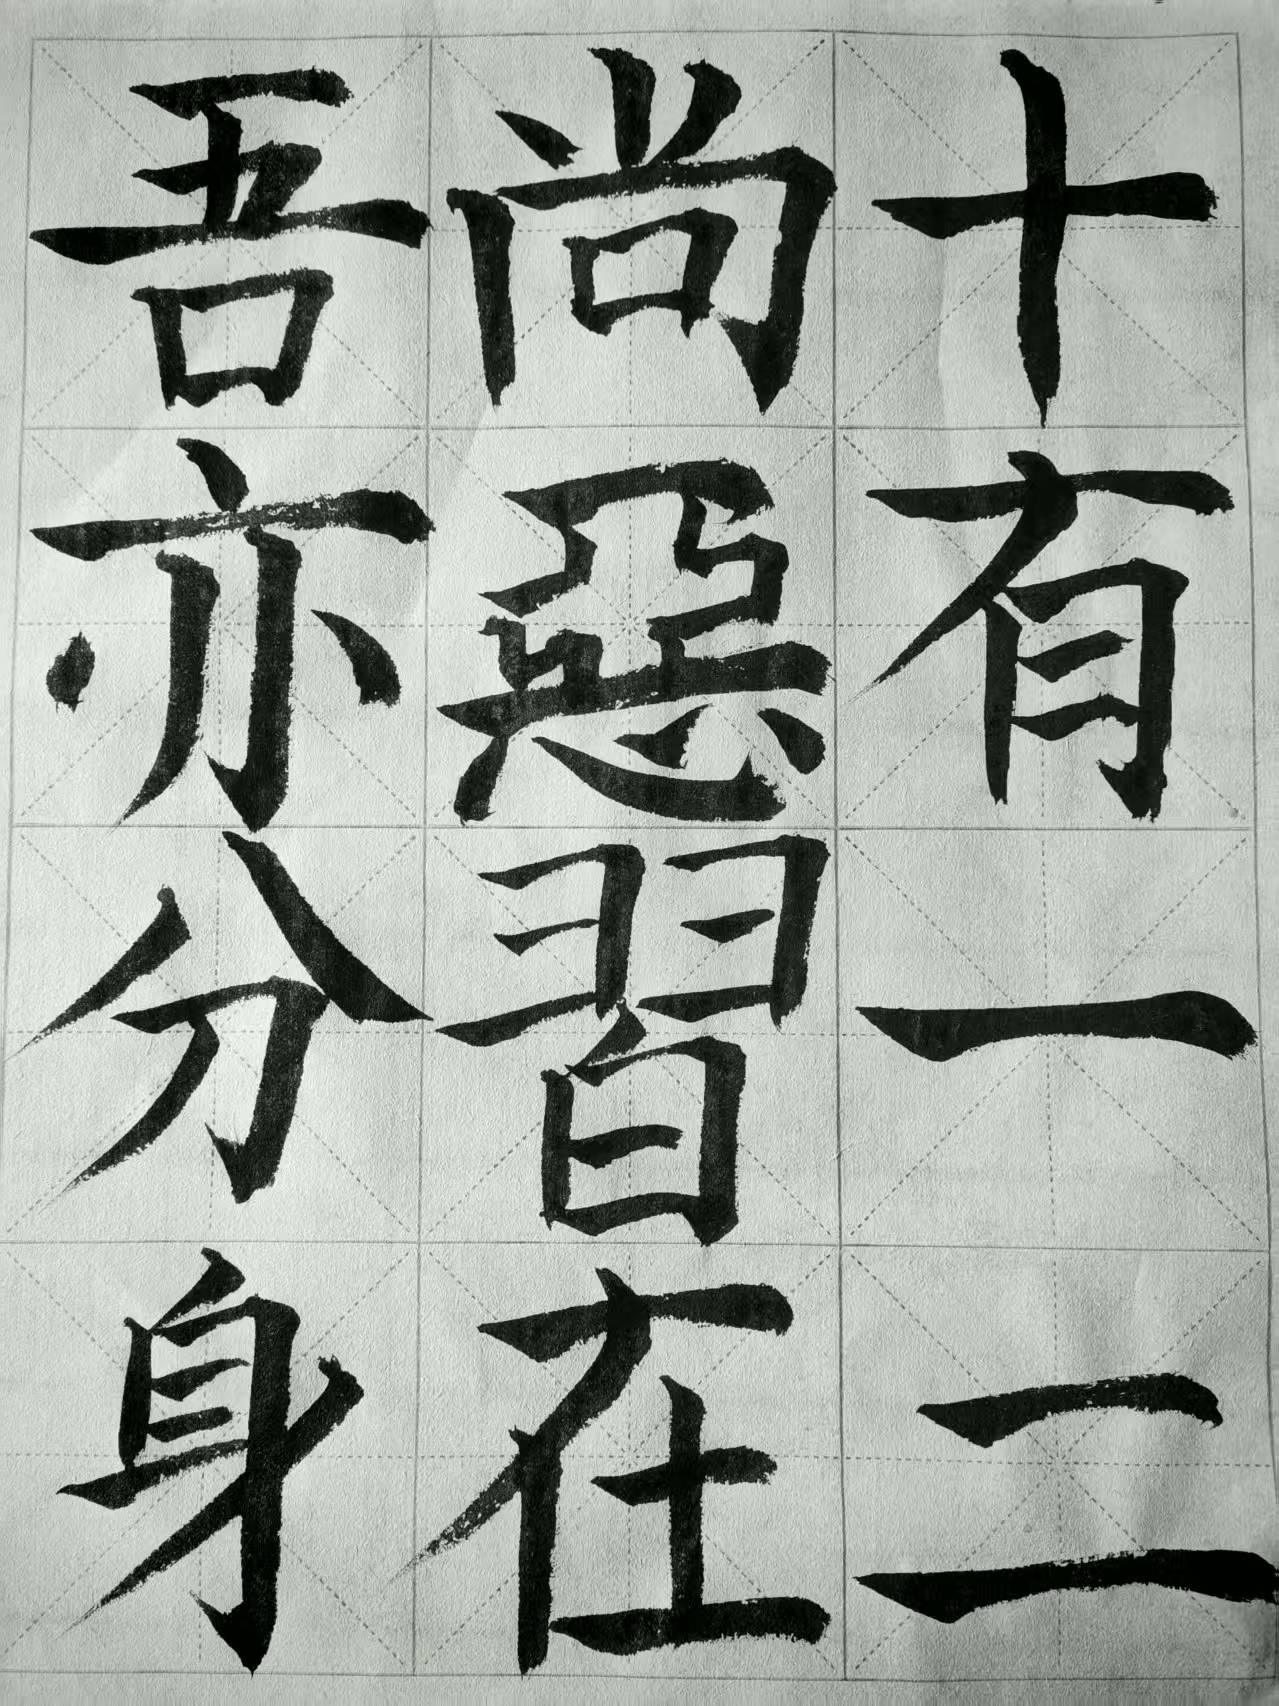 十有一二
尚惡習在
吾亦分身